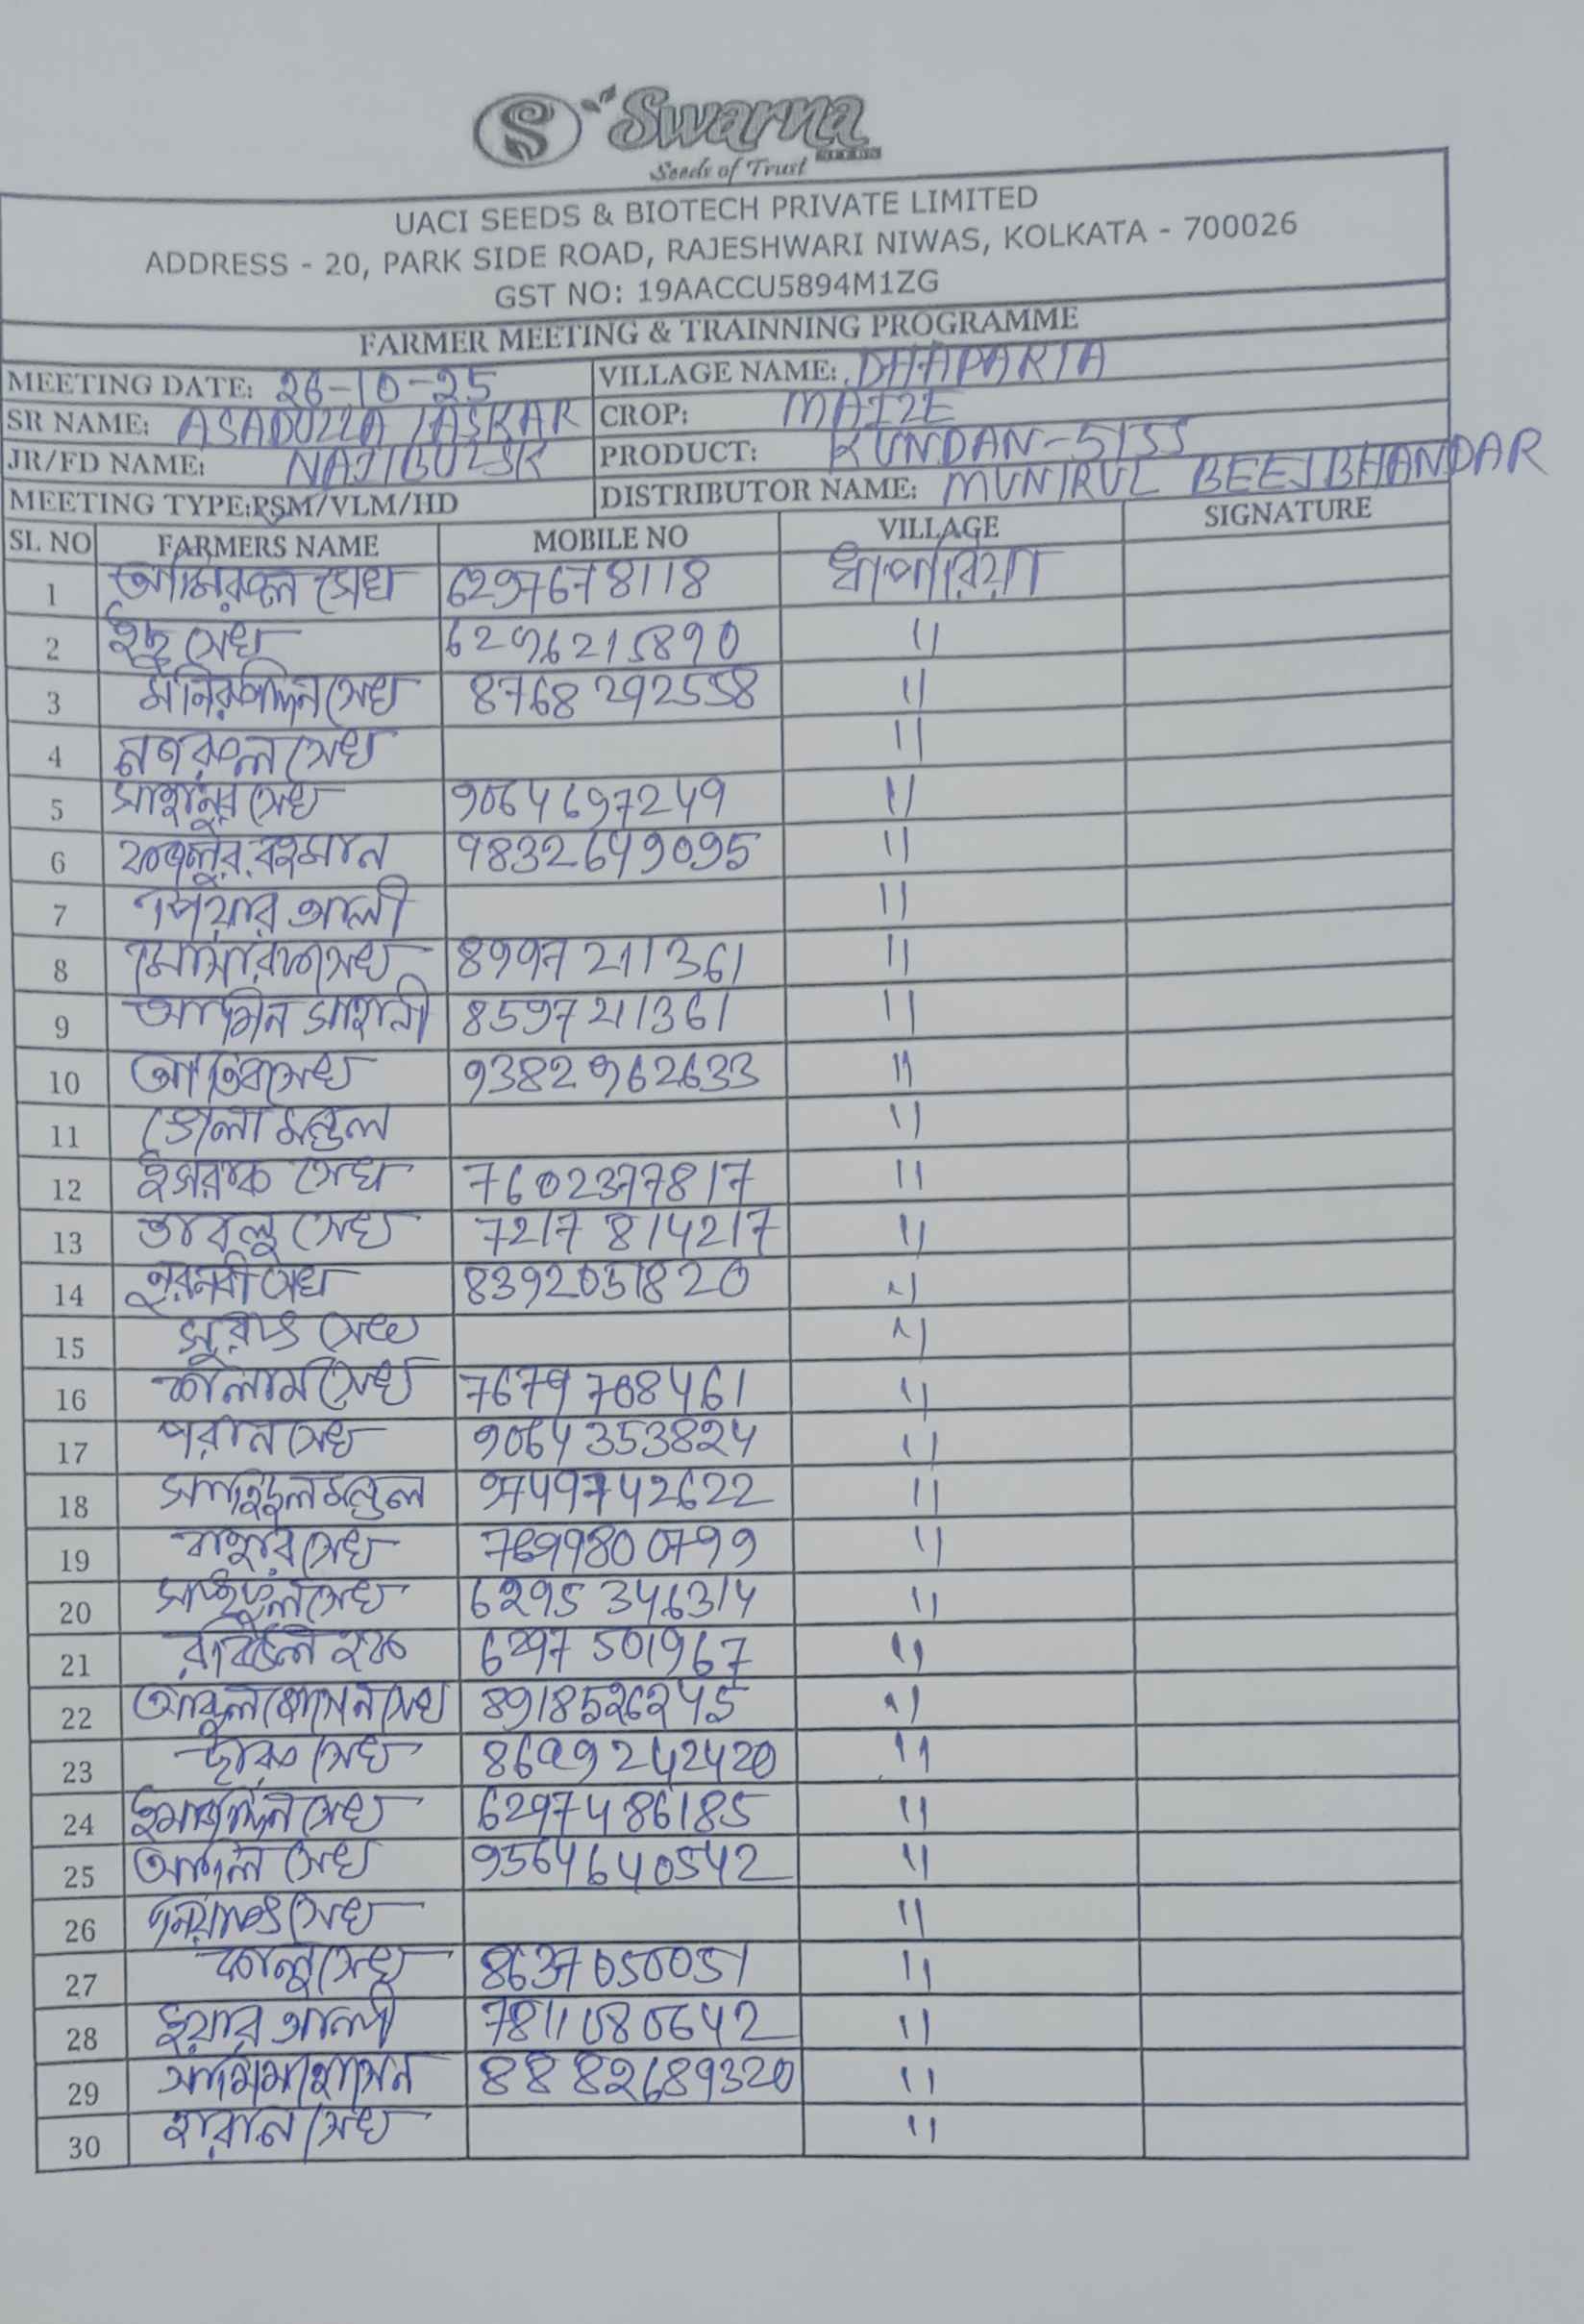 S Swarna
SEEDS
Seeds of Trust
UACI SEEDS & BIOTECH PRIVATE LIMITED
ADDRESS - 20, PARK SIDE ROAD, RAJESHWARI NIWAS, KOLKATA - 700026
GST NO: 19AACCU5894M1ZG
FARMER MEETING & TRAINNING PROGRAMME
MEETING DATE: 26-10-25 VILLAGE NAME: DHAPARIA
SR NAME: ASADUZZA LASKAR CROP: MAIZE
JR/FD NAME: NAJIBUL SK PRODUCT: KUNDAN-5155
MEETING TYPE:PSM/VLM/HD DISTRIBUTOR NAME: MUNIRUL BEEJ BHANDAR
SL NO FARMERS NAME MOBILE NO VILLAGE SIGNATURE
1 আমিরুল সেখ 6297678118 ধাপারিয়া
2 ইছু সেখ 6296215890 "
3 মনিরুদ্দিন সেখ 8768292558 "
4 নজরুল সেখ "
5 সাহানুর সেখ 9064697249 "
6 ফজলুর রহমান 9832649095 "
7 পিয়ার আলী "
8 মোসারফ সেখ 8997211361 "
9 আমিন সাহানী 8597211361 "
10 আতিব সেখ 9382962633 "
11 ভোলা মন্ডল "
12 ইসরাফ সেখ 7602377817 "
13 ডাবলু সেখ 7217814217 "
14 নুরনবী সেখ 8392051820 "
15 সুরাৎ সেখ "
16 কালাম সেখ 7679708461 "
17 পরান সেখ 9064353824 "
18 সাহিদুল মন্ডল 9749742622 "
19 বাহার সেখ 7699800799 "
20 সাইফুল সেখ 6295346314 "
21 রবিউল হক 6297501967 "
22 আবুল হোসেন সেখ 8918526245 "
23 হারু সেখ 8699242420 "
24 ইমাজদ্দিন সেখ 6297486185 "
25 আদিল সেখ 9564640542 "
26 নিয়ামৎ সেখ "
27 কালু সেখ 8637050051 "
28 ইয়ার আলী 7811080642 "
29 সামিম হোসেন 8882689320 "
30 হারান সেখ "